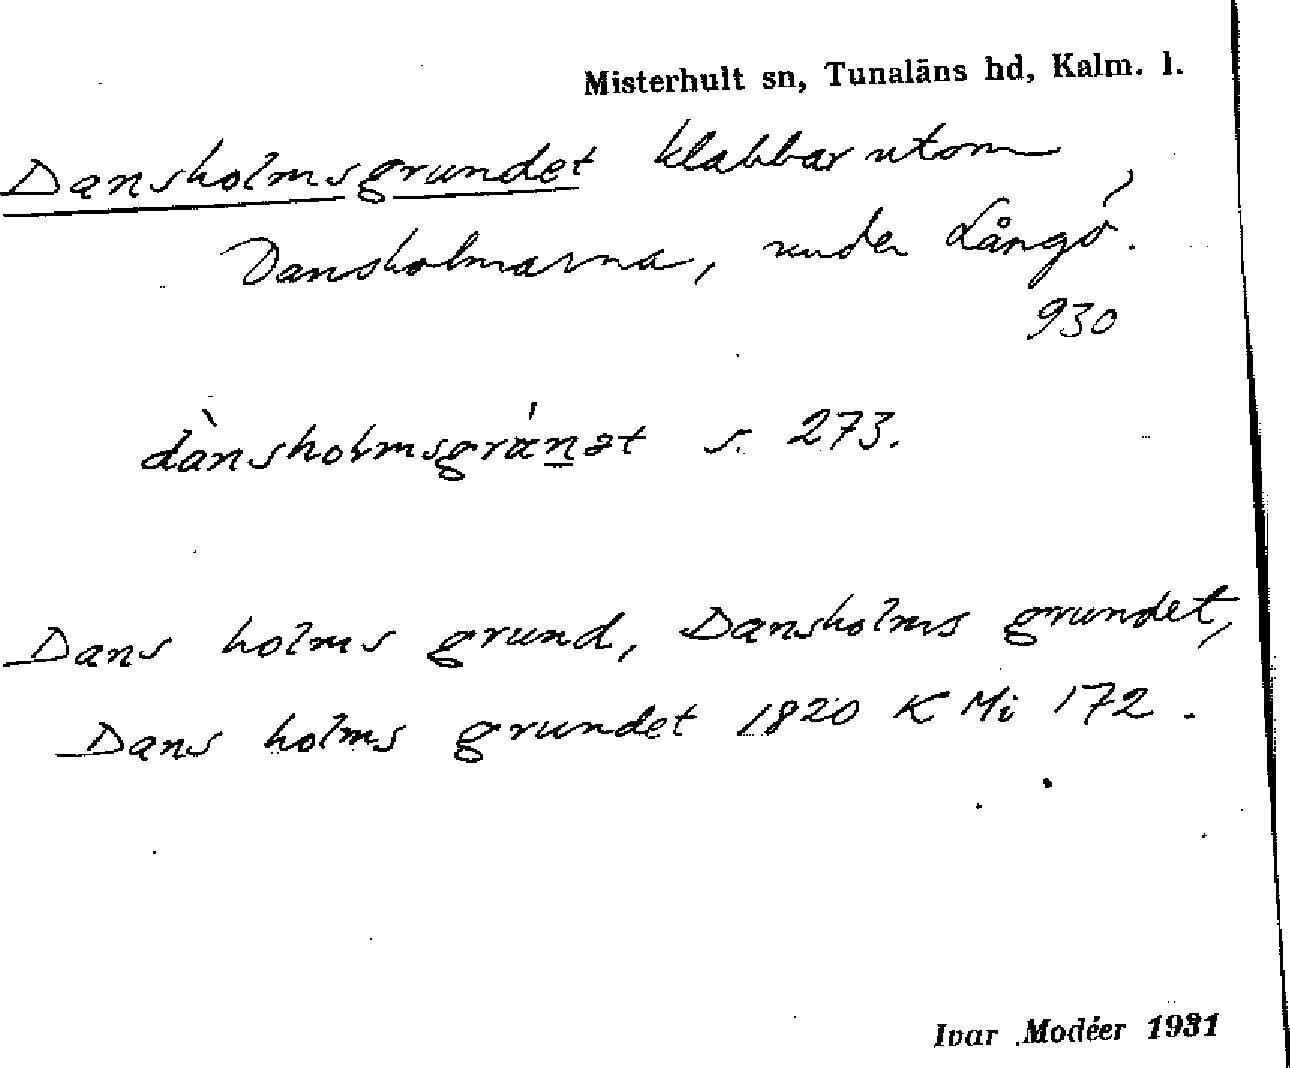 Misterhult sn, Tunaläns hd, Kalm. l.
Dansholmsgrundet klabbar utom
Dansholmarna, under Långö.
930
dànsholmsgránət s. 273.
Dans holms grund, Dansholms grundet,
Dans holms grundet 1820 K Mi 172.
Ivar Modéer 1931